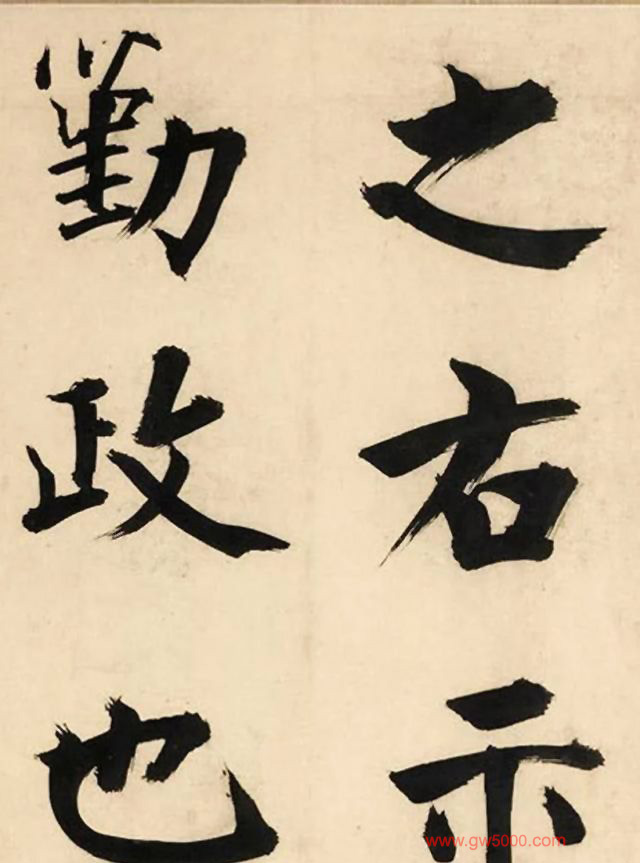 之右示
勤政也
www.gw5000.com